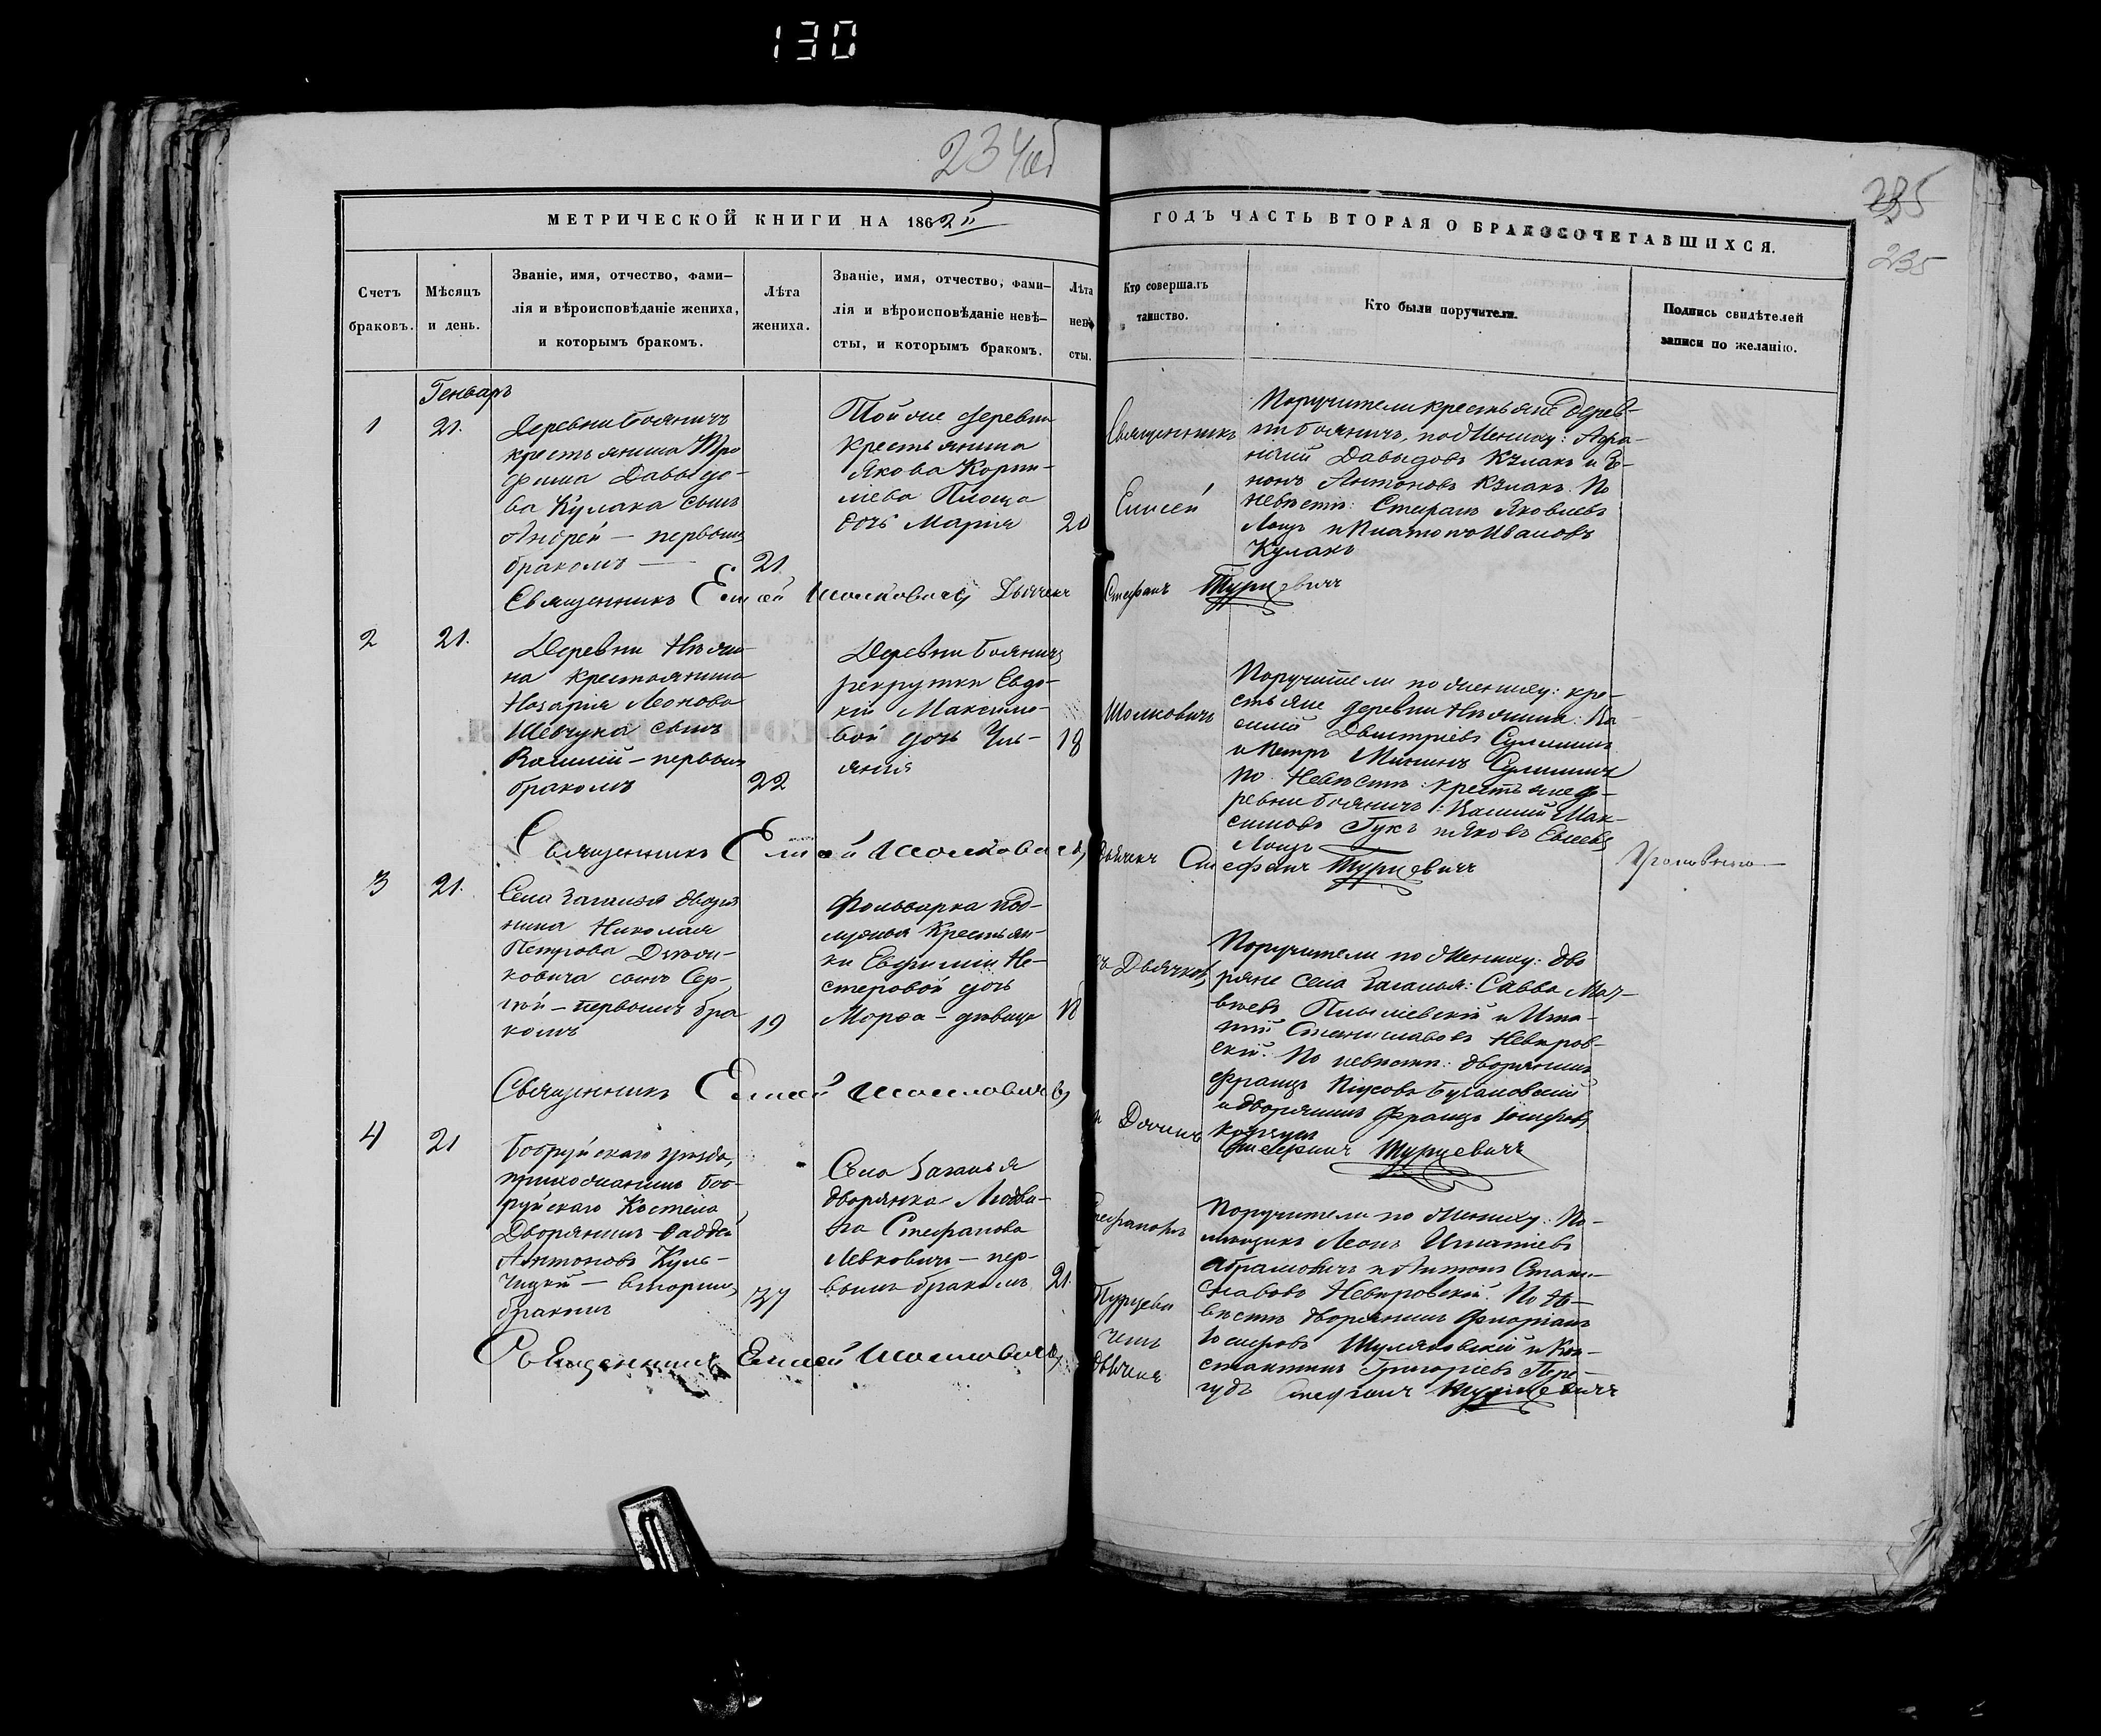 130
234об
235
235
МЕТРИЧЕСКОЙ КНИГИ НА 1862й
ГОДЪ ЧАСТЬ ВТОРАЯ О БРАКОСОЧЕТАВШИХСЯ.
Счетъ
браковъ.
Мѣсяцъ
и день.
Званіе, имя, отчество, фами-
лія и вѣроисповѣданіе жениха,
и которымъ бракомъ.
Лѣта
жениха.
Званіе, имя, отчество, фами-
лія и вѣроисповѣданіе невѣ-
сты, и которымъ бракомъ.
Лѣта
невѣ
сты.
Кто совершалъ
таинство.
Кто были поручители.
Подпись свидѣтелей
записи по желанію.
Генварь
1
21.
Деревни Бояничъ
крестьянина Тро
фима Давыдо-
ва Кулака сынъ
Андрей — первымъ
бракомъ —
21.
Той же деревни
крестьянина
Якова Корни-
лиева
дочь Марія
20
Священникъ
Елисей
Поручители крестьяне дерев-
ни Бояничъ, по Жениху: Афа-
насий Давыдовъ Кулакъ и
Антоновъ Кулакъ. По
невѣстѣ: Стефанъ Яковлевъ
и Платонъ Ивановъ
Кулакъ
Священникъ Елисей Шолковичъ Дьячекъ
Стефанъ Турцевичъ
2
21.
Деревни Нѣжи-
на крестьянина
Назарія Леонова
Шевчука сынъ
Василій — первымъ
бракомъ
22
Деревни Бояничъ
рекрутки Евдо-
кіи Максимо-
вой дочь Уль-
янія
18
Шолковичъ
Поручители по жениху: кре-
стьяне деревни Нѣжина: Ва-
силій Дмитріевъ
и Петръ Мининъ
По Невѣстѣ: крестьяне де-
ревни Бояничъ: Василий Мак-
симовъ Гукъ и Яковъ
Священникъ Елисей Шолковичъ,
Дьячекъ Стефанъ Турцевичъ
3
21.
Села Загалья дворя
нина Николая
Петрова
ковича сынъ Сер-
гѣй — первымъ бра
комъ
19
Фольварка Под-
лужья Крестьян-
ки Евфиміи Не-
стеровой дочь
Марѳа — дѣвица
18
съ Дьячкомъ
Поручители по Жениху: дво
ряне села Загалья: Савва Мат-
вѣевъ и Игна-
тий Станиславовъ Невяров-
скій. По невѣстѣ: дворянинъ
Францъ
и дворянинъ Францъ Іосифовъ
Священникъ Елисей Шолковичъ,
Стефанъ Турцевичъ
4
21
Бобруйскаго уѣзда,
прихожанинъ Боб-
руйскаго Костела
Дворянинъ Фаддей
Антоновъ Куль-
чицкій — вторымъ
бракомъ
37
Села Загалья
дворянка Людви-
га Стефанова
Левковичъ — пер-
вымъ бракомъ
21.
Стефаномъ
Турцеви
чемъ
Поручители по Жениху: По-
мѣщикъ Леонъ Игнатіевъ
Абрамовичъ и Антонъ Стани-
славовъ Невяровскій. По Не-
вѣстѣ дворянинъ Флоріанъ
Іосифовъ Шуляковскій и Кон-
стантинъ Григоріевъ
Священникъ Елисей Шолковичъ,
Дьячекъ
Стефанъ Турцевичъ